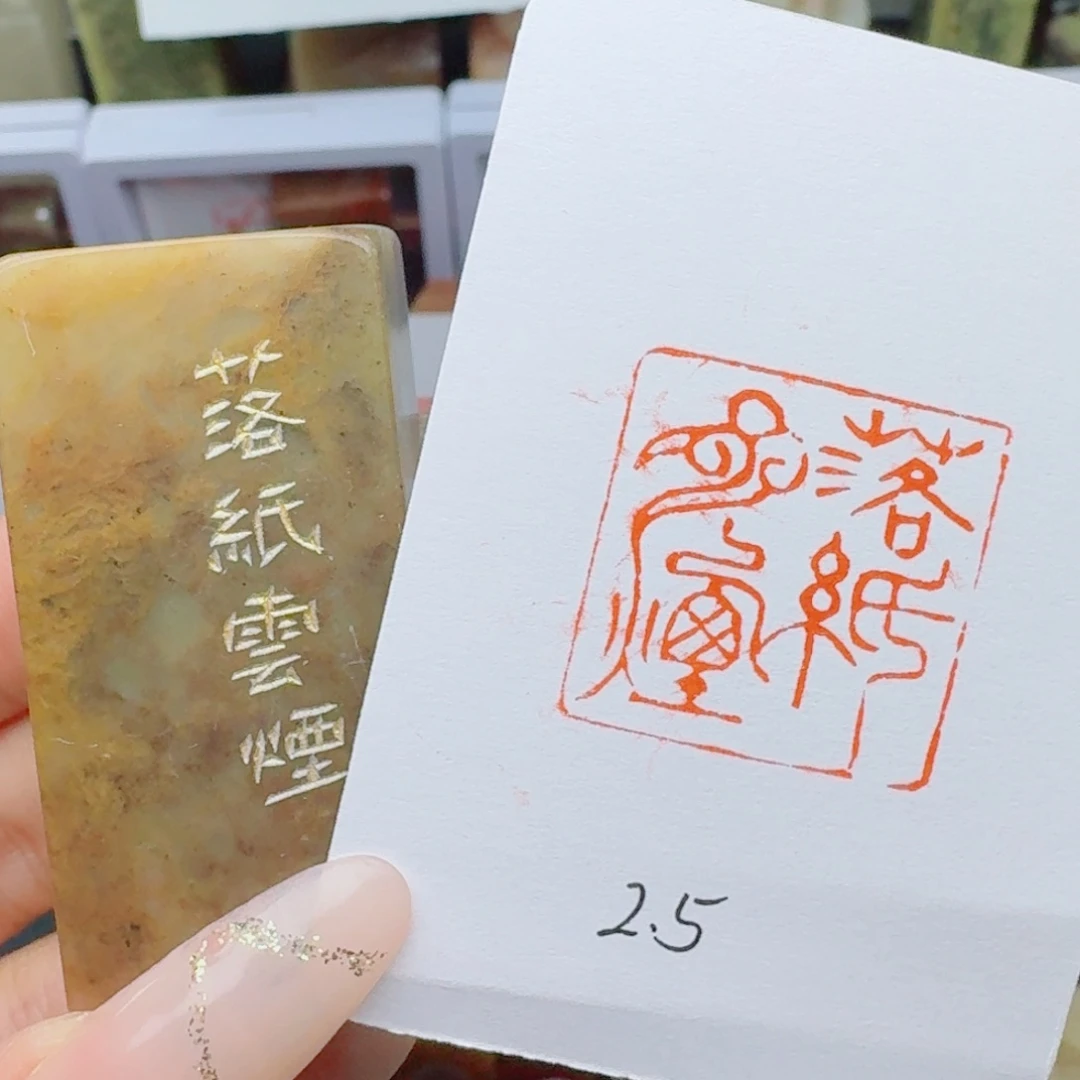 落紙雲煙
落紙
雲煙
2.5